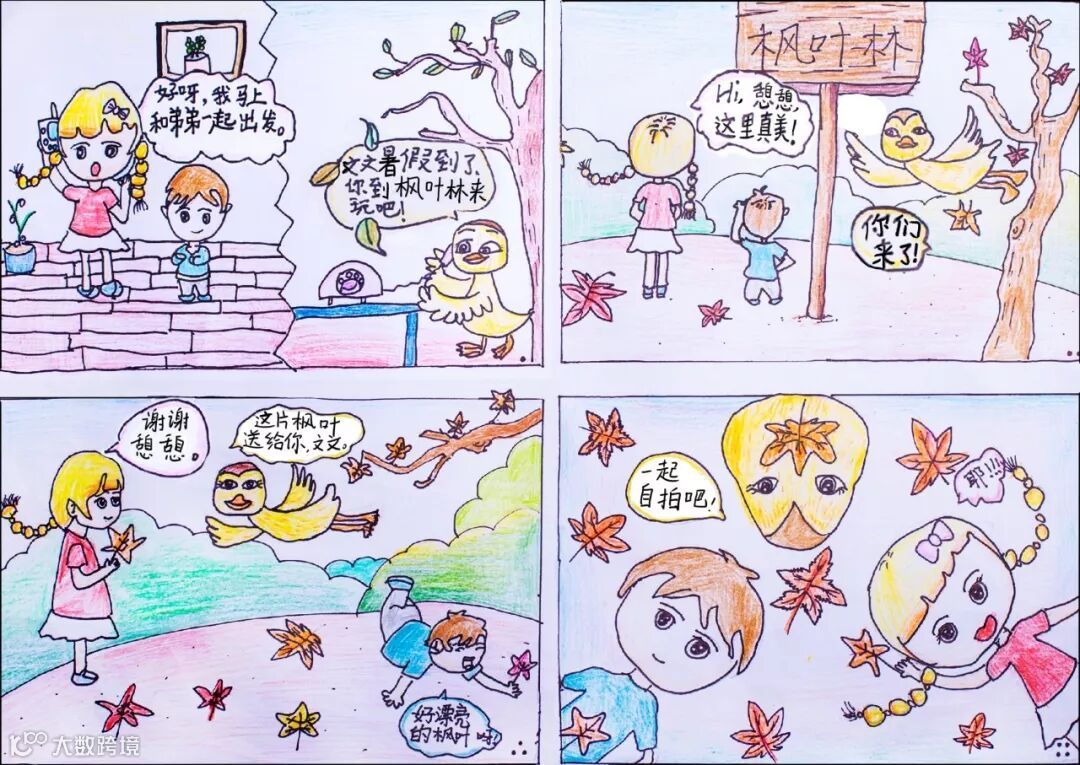 好呀，我马上
和弟弟一起出发。
文文暑假到了，
你到枫叶林来
玩吧！
枫叶林
Hi，憩憩，
这里真美！
你们
来了！
谢谢
憩憩。
这片枫叶
送给你，文文。
好漂亮
的枫叶呀！
一起
自拍吧！
耶!!!
大数跨境